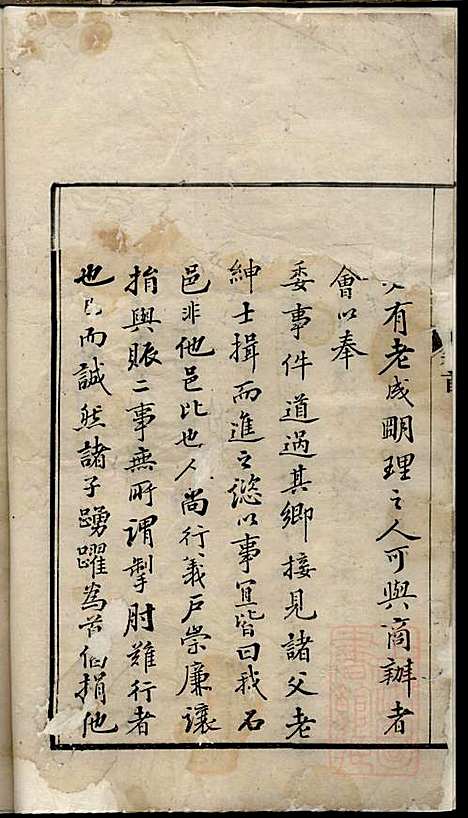 有老成明理之人可與商辦者
會以奉
委事件道過其鄉接見諸父老
紳士揖而進之慫以事宜皆曰我石
邑非他邑比也人尚行義戶崇廉讓
捐與賑二事無所謂掣肘難行者
也已而誠然諸子踴躍為首倡捐他